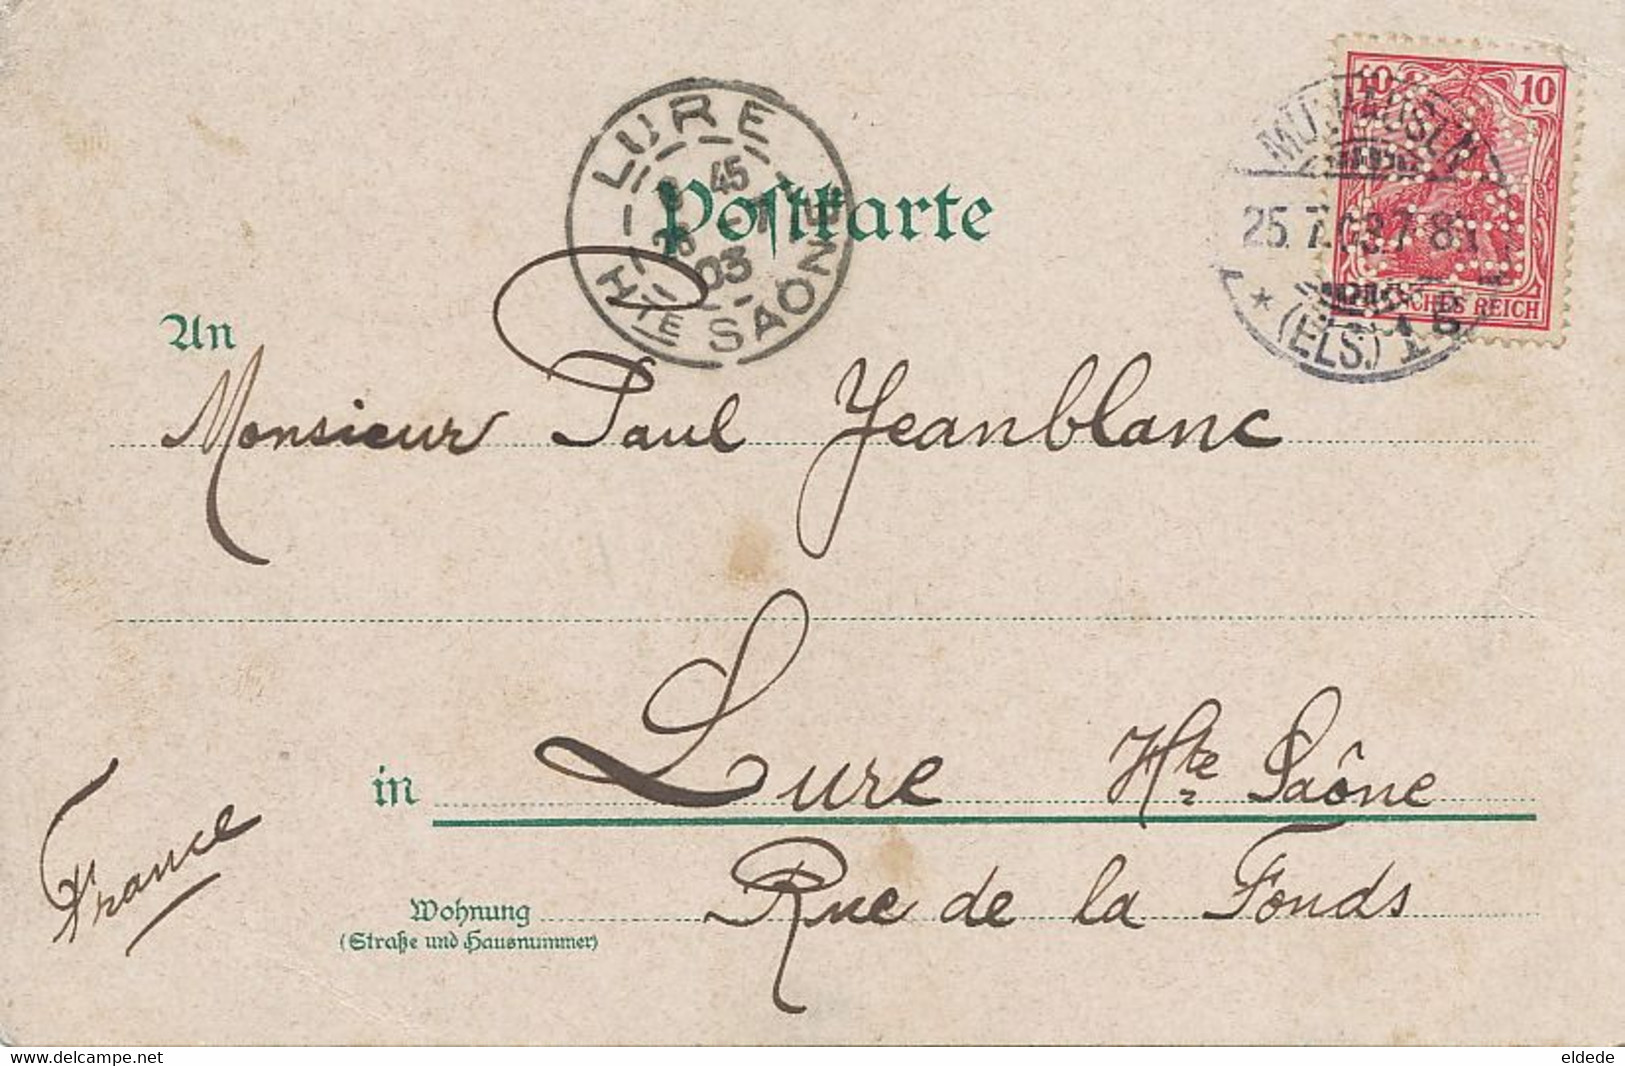 LURE
Hte SAÔNE
45
26
03
Postkarte
10 10
REICH
MÜLHAUSEN
25.7.03.7-8
* (ELS.) 1
An
Monsieur Paul Jeanblanc
in Lure Hte Saône
France
Wohnung Rue de la Fonds
(Straße und Hausnummer)
www.delcampe.net
eldede